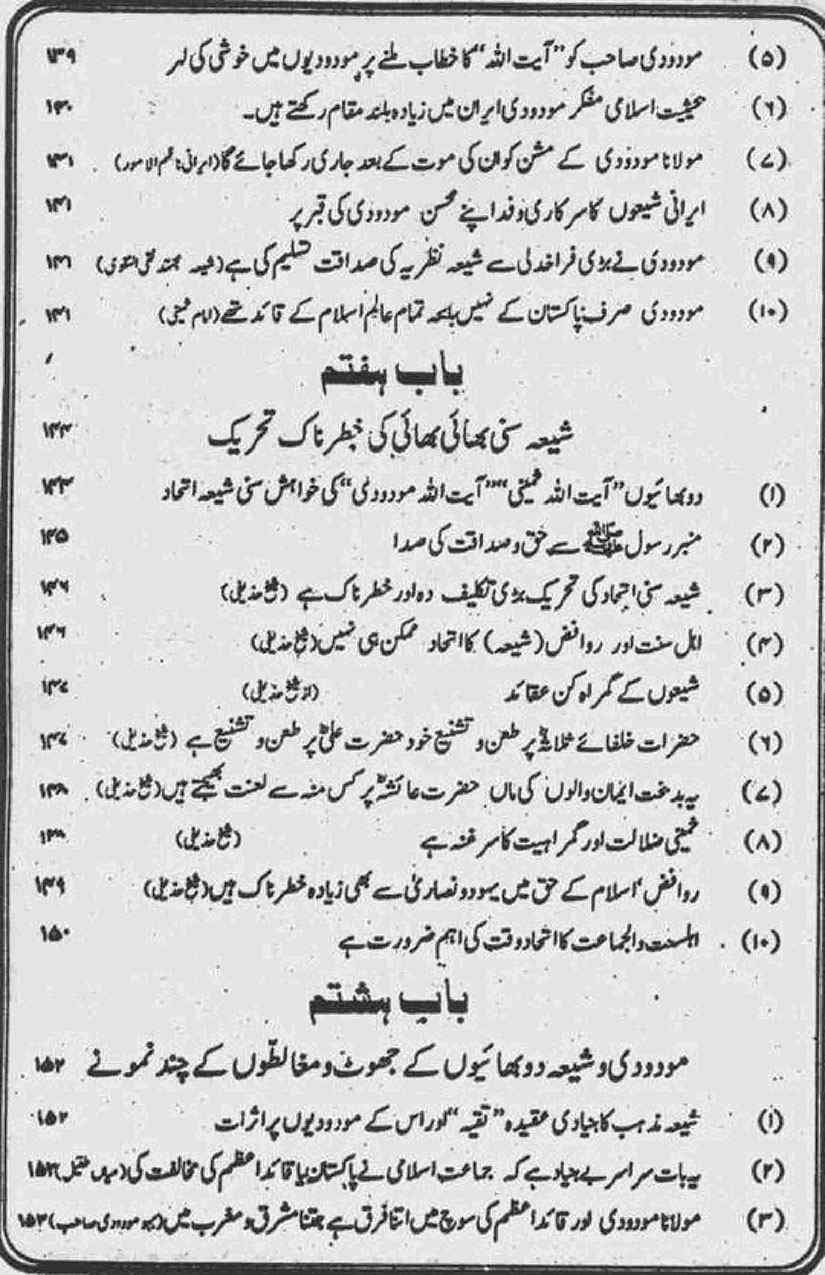 (۵) مودودی صاحب کو "آیت اللہ" کا خطاب ملنے پر مودودیوں میں خوشی کی لہر ۱۳۹
(۶) بحیثیت اسلامی مفکر مودودی ایران میں زیادہ بلند مقام رکھتے ہیں۔ ۱۴۰
(۷) مولانا مودودی کے مشن کو ان کی موت کے بعد جاری رکھا جائے گا (ایرانی ناظم الامور) ۱۴۱
(۸) ایرانی شیعوں کا سرکاری وفد اپنے محسن مودودی کی قبر پر ۱۴۱
(۹) مودودی نے بڑی فراخدلی سے شیعہ نظریہ کی صداقت تسلیم کی ہے (شیعہ مجتہد نقی النقوی) ۱۴۱
(۱۰) مودودی صرف پاکستان کے نہیں بلکہ تمام عالم اسلام کے قائد تھے (امام خمینی) ۱۴۱
باب ہفتم
شیعہ سنی بھائی بھائی کی خطرناک تحریک ۱۴۳
(۱) دو بھائیوں "آیت اللہ خمینی" "آیت اللہ مودودی" کی خواہش سنی شیعہ اتحاد ۱۴۳
(۲) منبر رسول ﷺ سے حق و صداقت کی صدا ۱۴۵
(۳) شیعہ سنی اتحاد کی تحریک بڑی تکلیف دہ اور خطرناک ہے (شیخ حذیفی) ۱۴۶
(۴) اہل سنت اور روافض (شیعہ) کا اتحاد ممکن ہی نہیں (شیخ حذیفی) ۱۴۶
(۵) شیعوں کے گمراہ کن عقائد (از شیخ حذیفی) ۱۴۷
(۶) حضرات خلفائے ثلاثہؓ پر طعن و تشنیع خود حضرت علیؓ پر طعن و تشنیع ہے (شیخ حذیفی) ۱۴۷
(۷) یہ بدبخت ایمان والوں کی ماں حضرت عائشہؓ پر کس منہ سے لعنت بھیجتے ہیں (شیخ حذیفی) ۱۴۸
(۸) خمینی ضلالت اور گمراہیت کا سرغنہ ہے (شیخ حذیفی) ۱۴۸
(۹) روافض، اسلام کے حق میں یہود و نصاریٰ سے بھی زیادہ خطرناک ہیں (شیخ حذیفی) ۱۴۹
(۱۰) اہلسنت والجماعت کا اتحاد وقت کی اہم ضرورت ہے ۱۵۰
باب ہشتم
مودودی و شیعہ دو بھائیوں کے جھوٹ و مغالطوں کے چند نمونے ۱۵۲
(۱) شیعہ مذہب کا بنیادی عقیدہ "تقیہ" اور اس کے مودودیوں پر اثرات ۱۵۲
(۲) یہ بات سراسر بے بنیاد ہے کہ جماعت اسلامی نے پاکستان یا قائداعظم کی مخالفت کی (میاں طفیل) ۱۵۲
(۳) مولانا مودودی اور قائداعظم کی سوچ میں اتنا فرق ہے جتنا مشرق و مغرب میں (بیگم مودودی صاحب) ۱۵۳